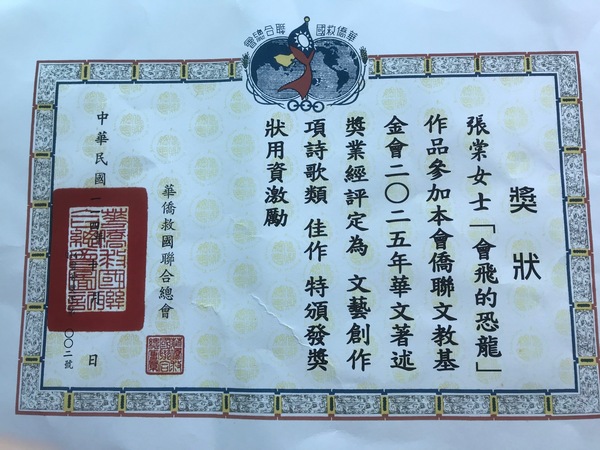 華僑救國聯合總會
獎狀
張棠女士「會飛的恐龍」
作品參加本會僑聯文教基
金會二〇二五年華文著述
獎業經評定為 文藝創作
項詩歌類 佳作 特頒發獎
狀用資激勵
華僑救國聯合總會
中華民國一
日
〇〇二號